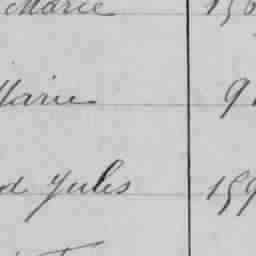 Marie
Marie 9
d Jules 159